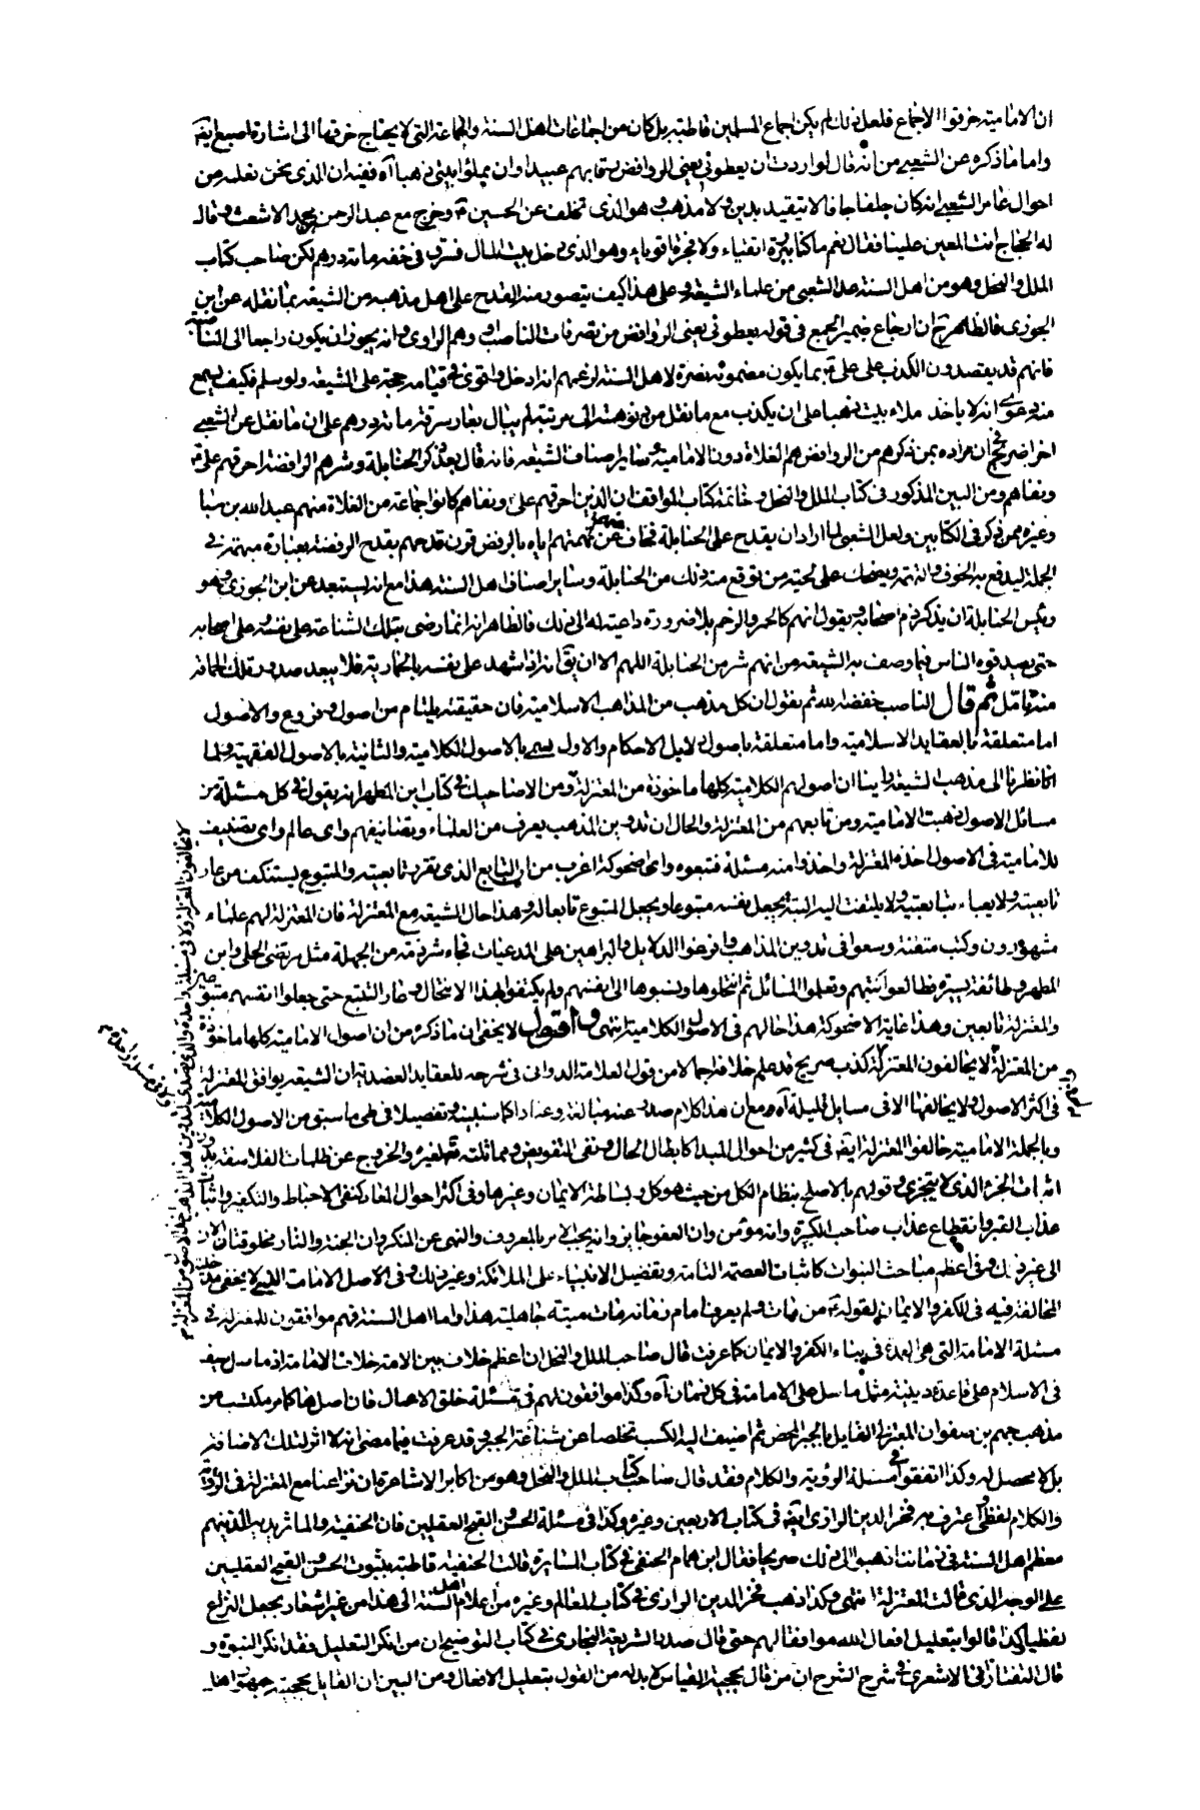 ان الامامية خرقوا الاجماع فلعل ذلك لم يكن اجماع المسلمين قاطبة بل كان من اجماعات اهل السنة والجماعة التي لا يحتاج خرقها الى اشارة اصبع ايضا
واما ما ذكره عن الشعبي من انه قال لو اردت ان يعطوني يعني الروافض رقابهم عبيدا وان يملؤا بيتي ذهبا آه ففيه ان الذي نحن نعلمه من
احوال عامر الشعبي انه كان جلفا جافا لا يتقيد بدين ولا مذهب وهو الذي تخلف عن الحسين ع وخرج مع عبد الرحمن بن محمد الاشعث وقال
له الحجاج انت المعين علينا فقال نعم ما كنا ببررة اتقياء ولا فجرة اقوياء وهو الذي دخل بيت المال فسرق في خفه مائة درهم لكن صاحب كتاب
الملل والنحل وهو من اهل السنة عد الشعبي من علماء الشيعة وعلى هذا كيف يتصور منه القدح على اهل مذهبه من الشيعة بما نقله عن ابن
الجوزي فالظاهر ح ان ارجاع ضمير الجمع في قوله يعطوني يعني الروافض من تصرفات الناصب وهم الراوي وانه يجوز ان يكون راجعا الى الناصبية
فانهم قد يقصدون الكذب على علي ع بما يكون مضمونه نصرة لاهل السنة لزعمهم انه ادخل واقوى في قيامه حجة على الشيعة ولو سلم فكيف يسمع
منه دعوى انه لا ياخذ ملاء بيت ذهبا على ان يكذب مع ما نقل من
اخرا صريح في ان مراده بمن ذكرهم من الروافض هم الغلاة دون الامامية وساير اصناف الشيعة فانه قال بعد ذكر الحنابلة وشرهم الرافضة احرقهم علي ع
ونفاهم ومن البين المذكور في كتاب الملل والنحل وخاتمة كتاب المواقف ان الذين احرقهم علي ونفاهم كانوا جماعة من الغلاة منهم عبد الله بن سبا
وغيره ممن ذكر في الكتابين ولعل الشعبي لما اراد ان يقدح على الحنابلة فخاف عن تهمتهم اياه بالرفض قرن قدحهم بقدح الرفضة بعبارة مبهمة في
الجملة ليدفع به الخوف والتهمة ويضحك على لحيته من يتوقع منه ذلك من الحنابلة وساير اصناف اهل السنة هذا مع انه يستبعد عن ابن الجوزي وهو
رئيس الحنابلة ان يذكر ذم اصحابه ويقول انهم كالحمر والرخم بلا ضرورة داعية له الى ذلك فالظاهر انه انما رضي بتلك الشناعة على نفسه وعلى اصحابه
حتى يصدقوه الناس فيما وصف به الشيعة من انهم شر من الحنابلة اللهم الا ان يق انه اذا شهد على نفسه بالحمارية فلا يبعد صدور تلك الحماقة
منه تامل ثم قال الناصب خفضه الله ثم نقول ان كل مذهب من المذاهب الاسلامية فان حقيقته يلتئام من اصول وفروع والاصول
اما متعلقة بالعقايد الاسلامية واما متعلقة باصول دلايل الاحكام والاول يسمى بالاصول الكلامية والثانية بالاصول الفقهية وكلما
انا نظرنا الى مذهب الشيعة راينا ان اصولهم الكلامية كلها ماخوذة من المعتزلة ومن الاضاحيك في كتاب ابن المطهر انه يقول في كل مسئلة من
مسائل الاصول ذهبت الامامية ومن تابعهم من المعتزلة والحال ان تدوين المذهب يعرف من العلماء وتصانيفهم واي عالم واي تصنيف
للامامية في الاصول اخذه المعتزلة واخذوا منه مسئلة فتبعوه واي اضحوكة اغرب من ان التابع الذي تقرر تابعيته والمتبوع يستنكف من عار
تابعيته ولا يعباء بتابعيته ولا يلتفت اليه البتة يجعل نفسه متبوعا ويجعل المتبوع تابعا له وهذا حال الشيعة مع المعتزلة فان المعتزلة لهم علماء
مشهورون وكتب متقنة وسعوا في تدوين المذاهب وافرغوا الدلايل والبراهين على المدعيات فجاء شرذمة من الجهلة مثل مرتضى الحلي وابن
المطهر وطائفة يسيرة فطالعوا كتبهم وتعلموا المسائل ثم انتحلوها ونسبوها الى انفسهم ولم يكتفوا بهذا الانتحال وعار التتبع حتى جعلوا انفسهم متبوعين
والمعتزلة تابعين وهذا غاية الاضحوكة هذا حالهم في الاصول الكلامية انتهى واقول لا يخفى ان ما ذكره من ان اصول الامامية كلها ماخوذة
من المعتزلة لا يخالفون المعتزلة كذب صريح قد علم خلافه اجمالا من قول العلامة الدواني في شرحه للعقايد العضدية ان الشيعة يوافق المعتزلة
في اكثر الاصول ولا يخالفها الا في مسايل قليلة آه ومع ان هذا كلام صدر عنه مبالغة وعنادا كما سنبينه وتفصيلا في طي ما سبق من الاصول الكلامية
وبالجملة الامامية خالفوا المعتزلة ايضا في كثير من احوال المبدا كابطال الحال ونفي التفويض ومماثلته تع لغيره والخروج عن ظلمات الفلاسفة
اثبات الجزء الذي لا يتجزى وقولهم بالاصلح بنظام الكل من حيث هو كل وبساطة الايمان وغيرها وفي اكثر احوال المعاد كنفي الاحباط والتكفير واثبات
عذاب القبر وانقطاع عذاب صاحب الكبيرة وانه مؤمن وان العفو جايز وانه يجب الامر بالمعروف والنهي عن المنكر وان الجنة والنار مخلوقتان الان
الى غير ذلك وفي اعظم مباحث النبوات كاثبات العصمة التامة وتفضيل الانبياء على الملائكة وغير ذلك وفي الاصل الامامة التي لا يخفى
المخالفة فيه في الكفر والايمان لقوله ع من مات ولم يعرف امام زمانه مات ميتة جاهلية هذا واما اهل السنة فهم موافقون للمعتزلة في
مسئلة الامامة التي هي العمدة في بناء الكفر والايمان كما عرفت قال صاحب الملل والنحل ان اعظم خلاف بين الامة خلاف الامامة اذ ما سل سيف
في الاسلام على قاعدة دينية مثل ما سل على الامامة في كل زمان آه وكذا موافقون لهم في مسئلة خلق الاعمال فان اصلها كما مر مكتسب من
مذهب جهم بن صفوان المعتزلة القايل بالجبر المحض ثم اضيف اليه الكسب تخلصا عن شناعة الجبر وقد عرفت فيما مضى انه لا اثر لتلك الاضافة
بل لا محصل له وكذا اتفقوا في مسئلة الرؤية والكلام فقد قال صاحب كتاب الملل والنحل وهو من اكابر الاشاعرة ان نزاعنا مع المعتزلة في الرؤية
والكلام لفظي واعترف به فخر الدين الرازي ايضا في كتاب الاربعين وغيره وكذا في مسئلة الحسن والقبح العقليين فان الحنفية والماتريدية الذين هم
معظم اهل السنة في زماننا ذهبوا الى ذلك صريحا فقال ابن همام الحنفي في كتاب المسايرة قالت الحنفية قاطبة بثبوت الحسن والقبح العقليين
على الوجه الذي قالت المعتزلة انتهى وكذا ذهب فخر الدين الرازي في كتاب المعالم وغيره من اعلام اهل السنة الى هذا من غير اشعار بجعل النزاع
لفظيا وكذا قالوا بتعليل افعال الله موافقا لهم حتى قال صدر الشريعة البخاري في كتاب التوضيح ان من انكر التعليل فقد انكر النبوة و
قال التفتازاني الاشعري في شرح الشرح ان من قال بحجية القياس لا بد له من القول بتعليل الافعال ومن البين ان القايل بحجية جمهور اهل